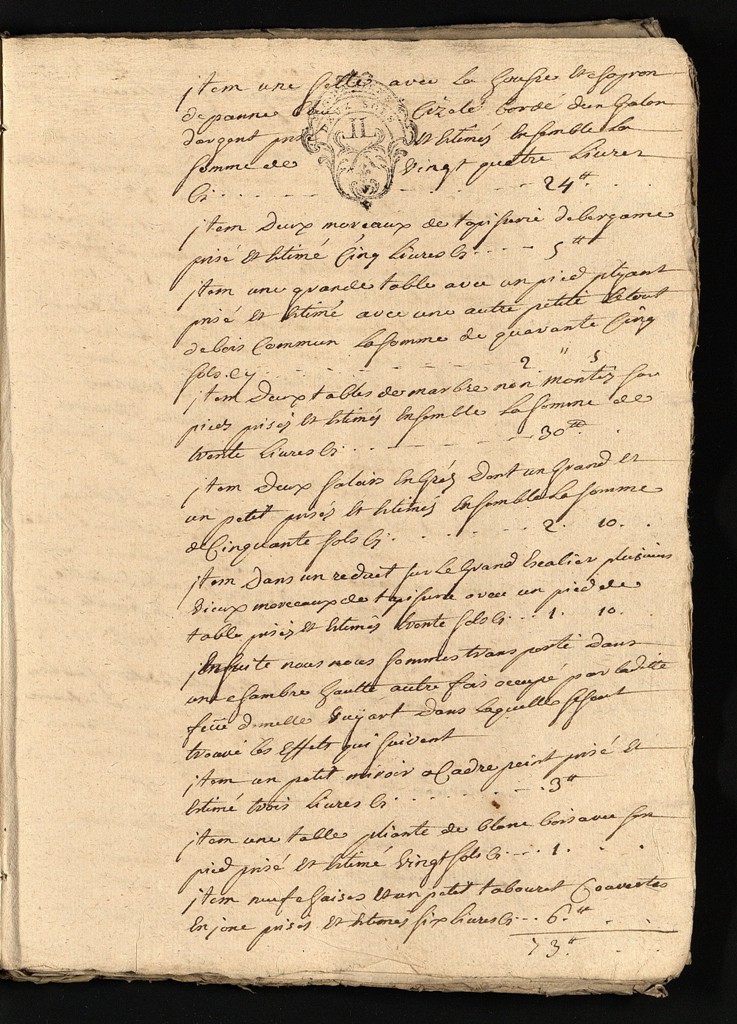 jtem une selle avec la housse et chapron
de panne bleu Cizelé bordé d'un galon
d'argent prisé et estimés ensemble la
somme de vingt quatre livres
Cy . . . 24#
DEUX SOLS
jtem Deux morceaux de tapisserie de bergame
prisé et estimé Cinq livres Cy . . . 5#
jtem une grande table avec un pied plyant
prisé et estimé avec une autre petite le tout
de bois Commun la somme de quarante Cinq
sols. Cy . . . 2 " 5
jtem Deux tables de marbre non montés sur
pieds prisés et estimés ensemble la somme de
trente livres Cy . . . 30#
jtem Deux En Grés Dont un Grand et
un petit prisés et estimés ensemble la somme
de Cinquante sols Cy . . . 2. 10.
jtem Dans un reduit sur le Grand Escalier plusieurs
vieux morceaux de tapisserie avec un pied de
table prisés et estimés trente sols Cy . . . 1. 10.
jEnsuite nous nous sommes transporté dans
une chambre haulte autre fois occupé par ladite
feüe dmelle dans laquelle sesont
trouvé les Effets qui suivent
jtem un petit miroir a Cadre peint prisé et
estimé trois livres Cy . . . 3#
jtem une table pliante de blanc bois avec son
pied prisé et estimé vingt sols Cy . . . 1.
jtem neuf chaises et un petit tabouret Couvertes
En jonc prisés et estimés six livres Cy . . 6.#
73#